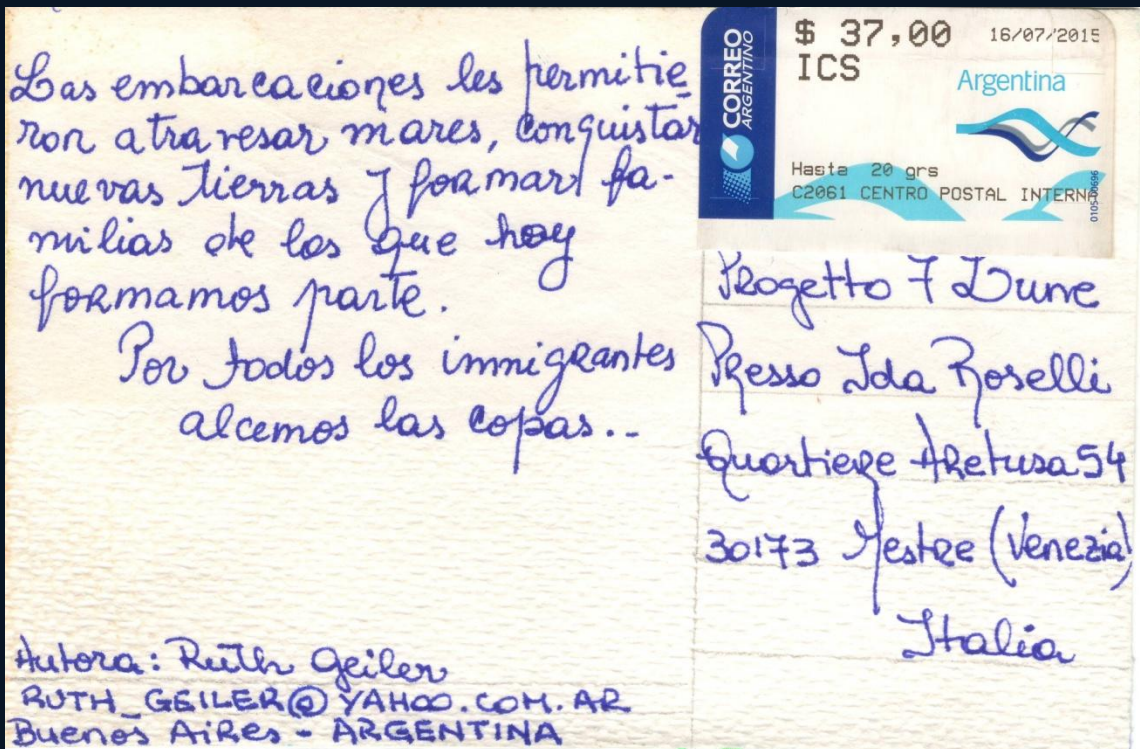 Las embarcaciones les permitie
ron atravesar mares, conquistar
nuevas tierras y formar fa-
milias de los que hoy
formamos parte.
Por todos los immigrantes
alcemos las copas..
Autora: Ruth Geiler
RUTH_GEILER@YAHOO.COM.AR
Buenos Aires - ARGENTINA
CORREO
ARGENTINO
$ 37,00 16/07/2015
ICS
Argentina
Hasta 20 grs
C2061 CENTRO POSTAL INTERNA
0105-00696
Progetto 7 Lune
Presso Ida Roselli
Quartiere Aretusa 54
30173 Mestre (Venezia)
Italia